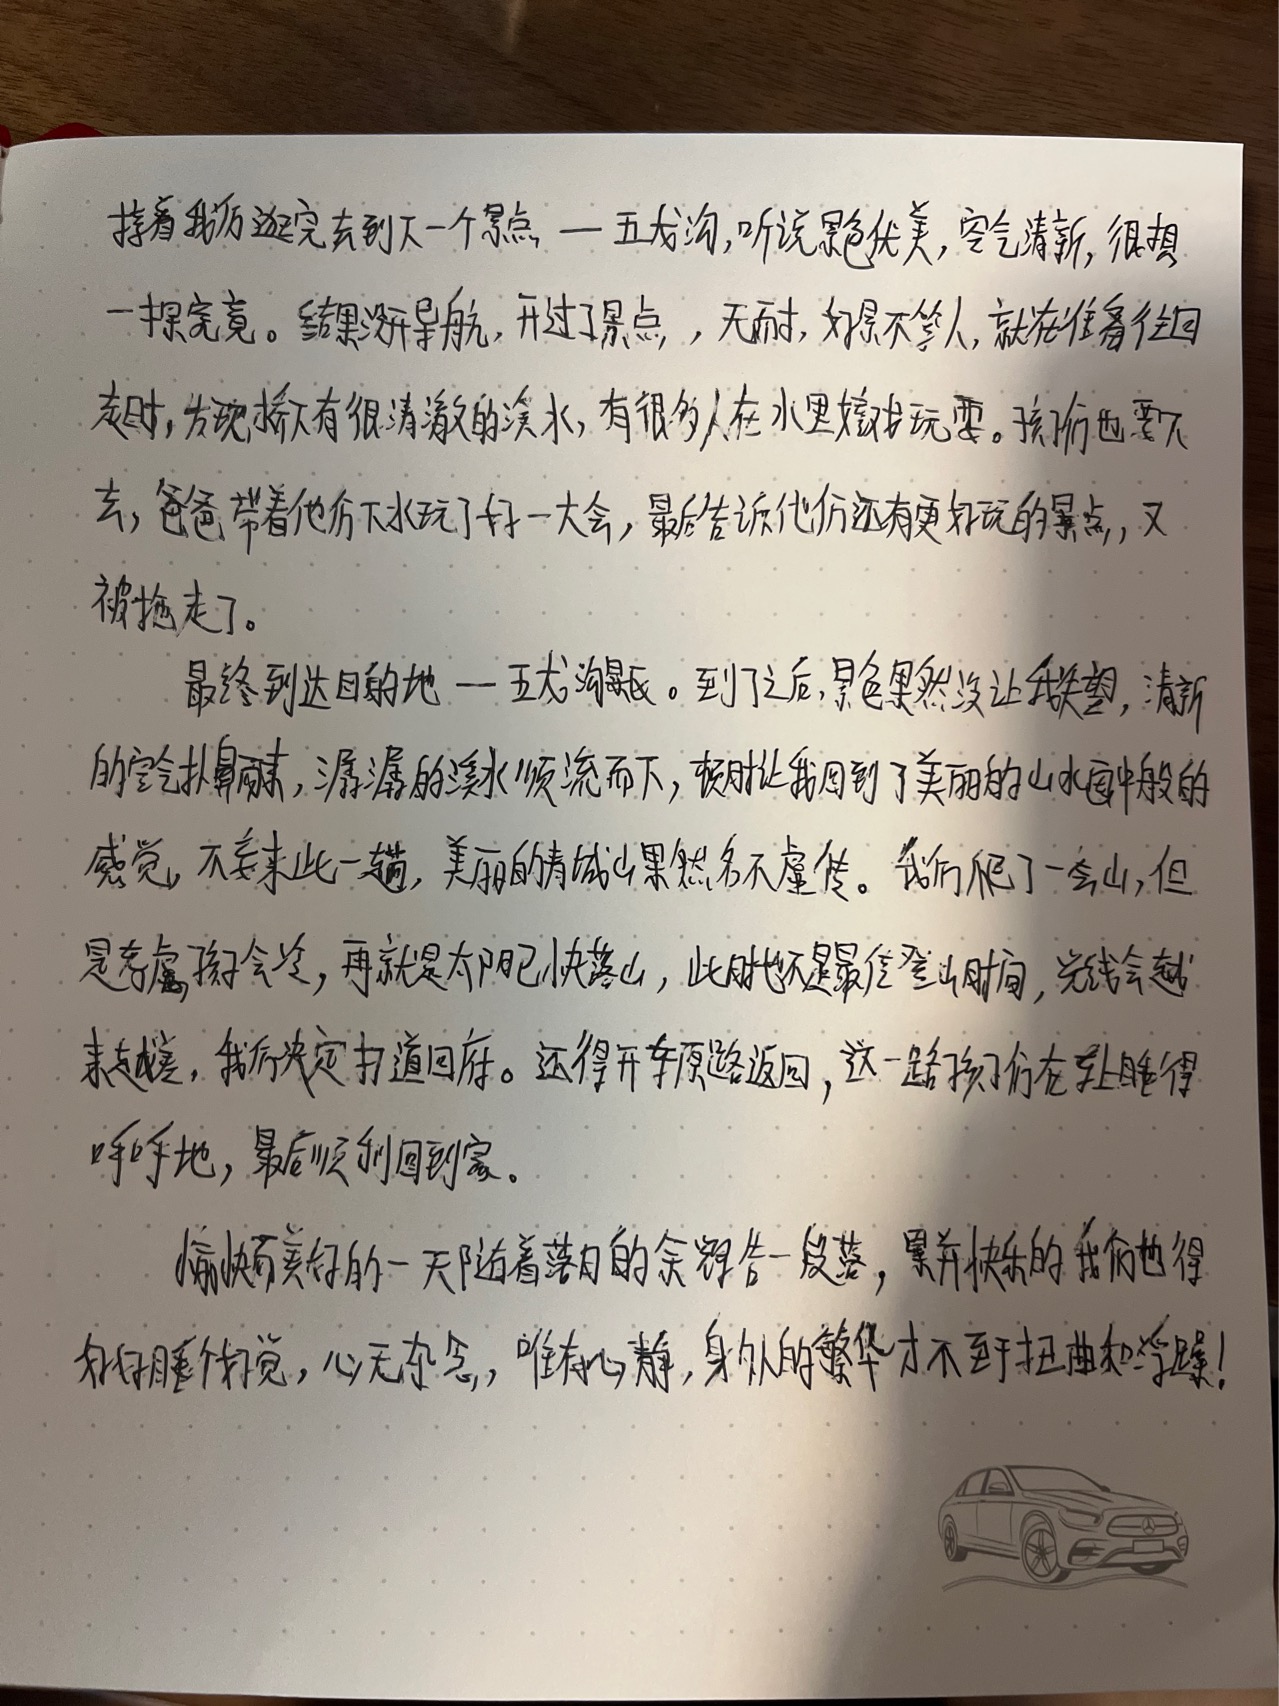 接着我们逛完去到下一个景点 — 五龙沟,听说景色优美,空气清新,很想
一探究竟。结果没开导航,开过了景点,无耐,好景不等人,就在准备往回
走时,发现桥下有很清澈的溪水,有很多人在水里嬉戏玩耍。孩子们也要下
去,爸爸带着他们下水玩了好一大会,最后告诉他们还有更好玩的景点,又
被拖走了。
最终到达目的地 — 五龙沟景区。到了之后,景色果然没让我失望,清新
的空气扑鼻而来,潺潺的溪水顺流而下,顿时让我回到了美丽的山水画中般的
感觉,不妄来此一趟,美丽的青城山果然名不虚传。我们爬了一会山,但
是考虑孩子会冷,再就是太阳已快落山,此时也不是最佳登山时间,光线会越
来越差,我们决定打道回府。还得开车原路返回,这一路孩子们在车上睡得
呼呼地,最后顺利回到家。
愉快而美好的一天随着落日的余辉告一段落,累并快乐的我们也得
好好睡个好觉,心无杂念,唯有心静,身外的繁华才不至于扭曲和浮躁!